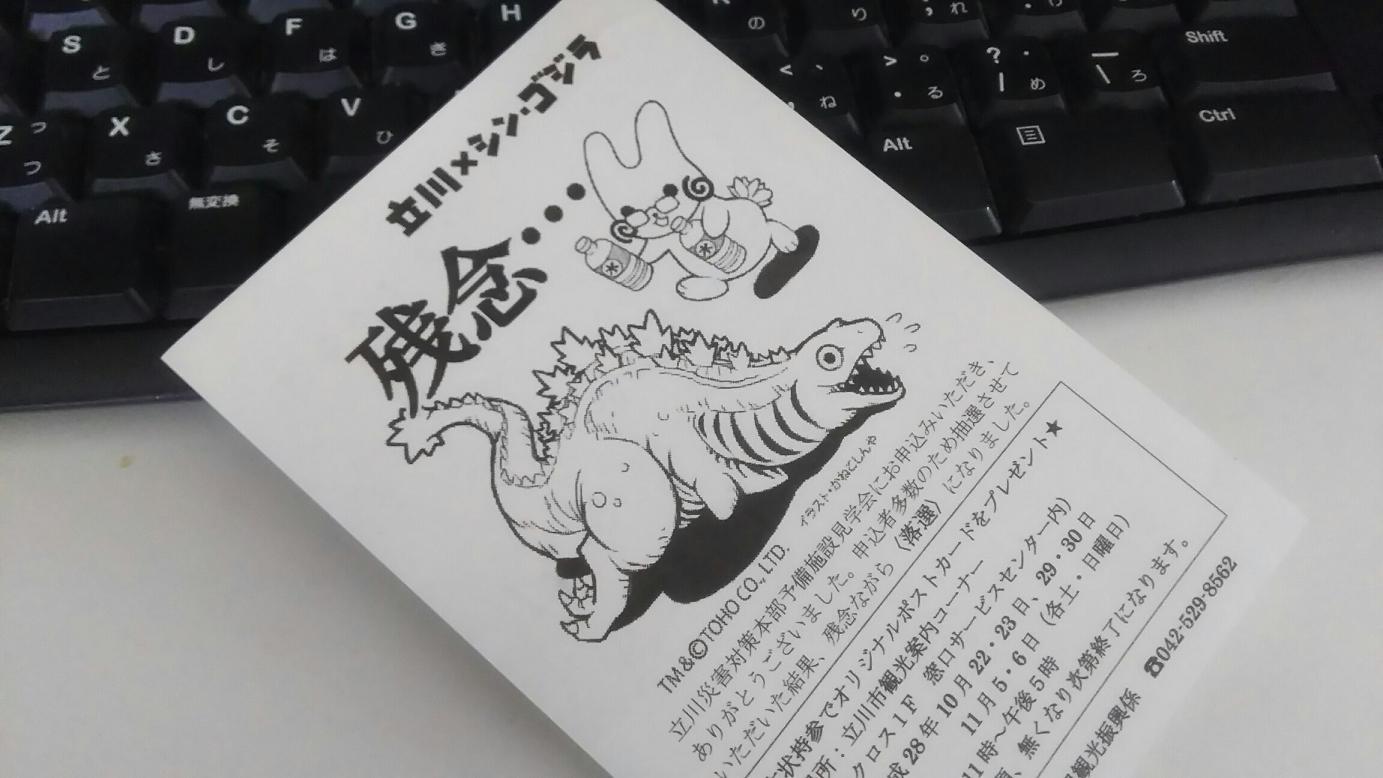 S と
D し
F は
G き
H
の
り
れ
Z つ っ
X さ
C そ
V ひ
< 、 ね
> 。 . る
? ・ / め
_ \ ろ
Shift
Alt
無変換
Alt
Ctrl
立川×シン・ゴジラ
残念・・・
イラスト・かねこしんや
TM&©TOHO CO., LTD.
立川災害対策本部予備施設見学会にお申込みいただき、
ありがとうございました。申込者多数のため抽選させて
いただいた結果、残念ながら〈落選〉になりました。
状持参でオリジナルポストカードをプレゼント★
所：立川市観光案内コーナー
クロス1F 窓口サービスセンター内)
成28年10月22・23日、29・30日
11月5・6日（各土・日曜日）
11時～午後5時
無くなり次第終了になります。
観光振興係 ☎042-529-8562